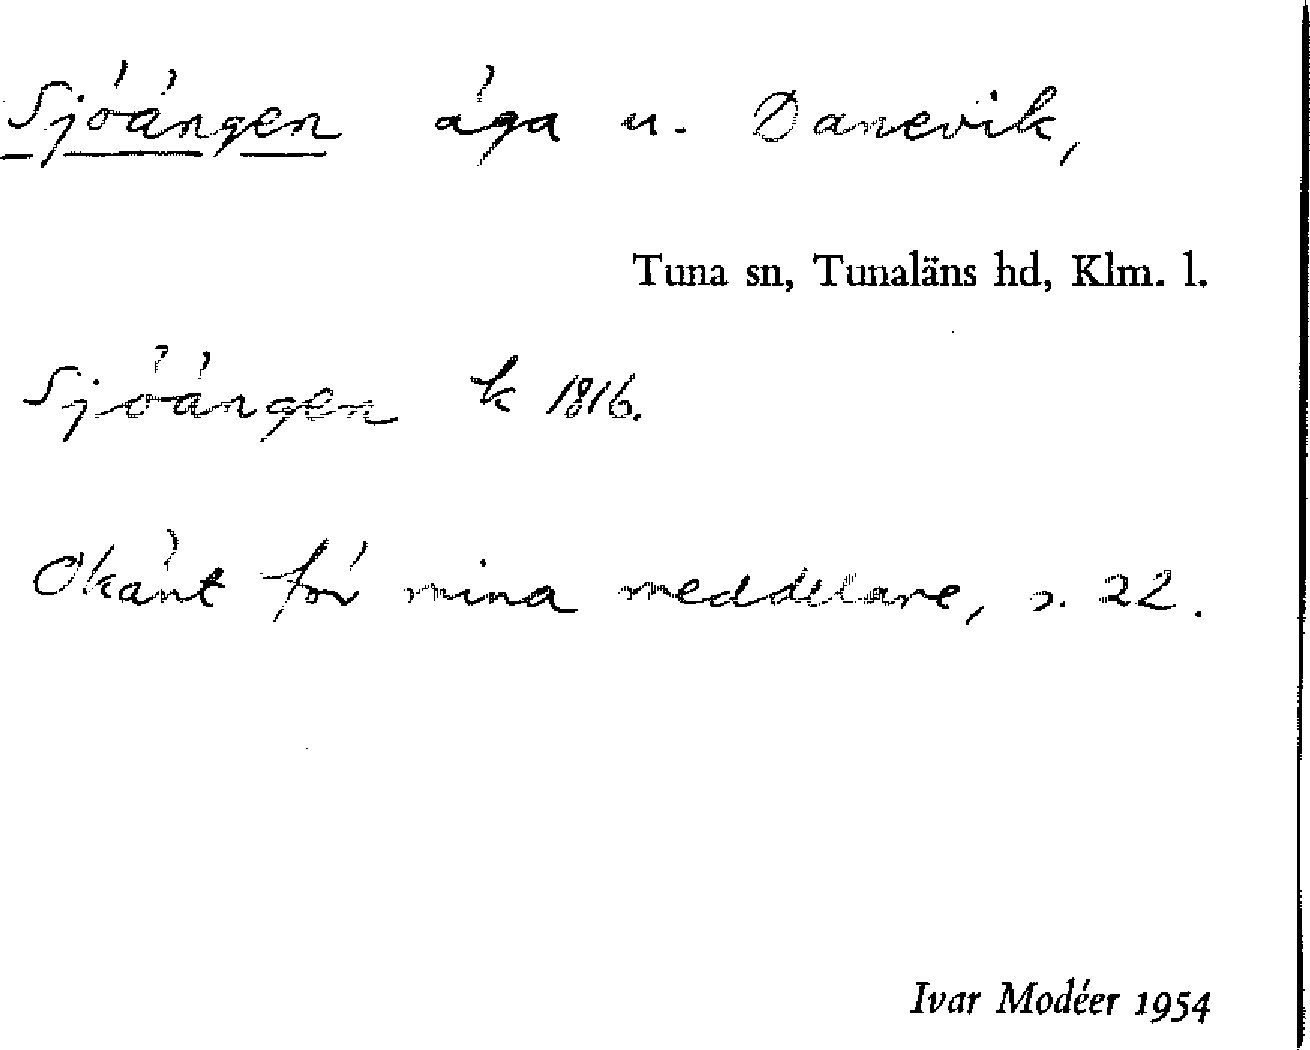 Sjöängen äga u. Danevik,
Tuna sn, Tunaläns hd, Klm. l.
Sjöängen k 1816.
Okänt för mina meddelare, s. 22.
Ivar Modéer 1954